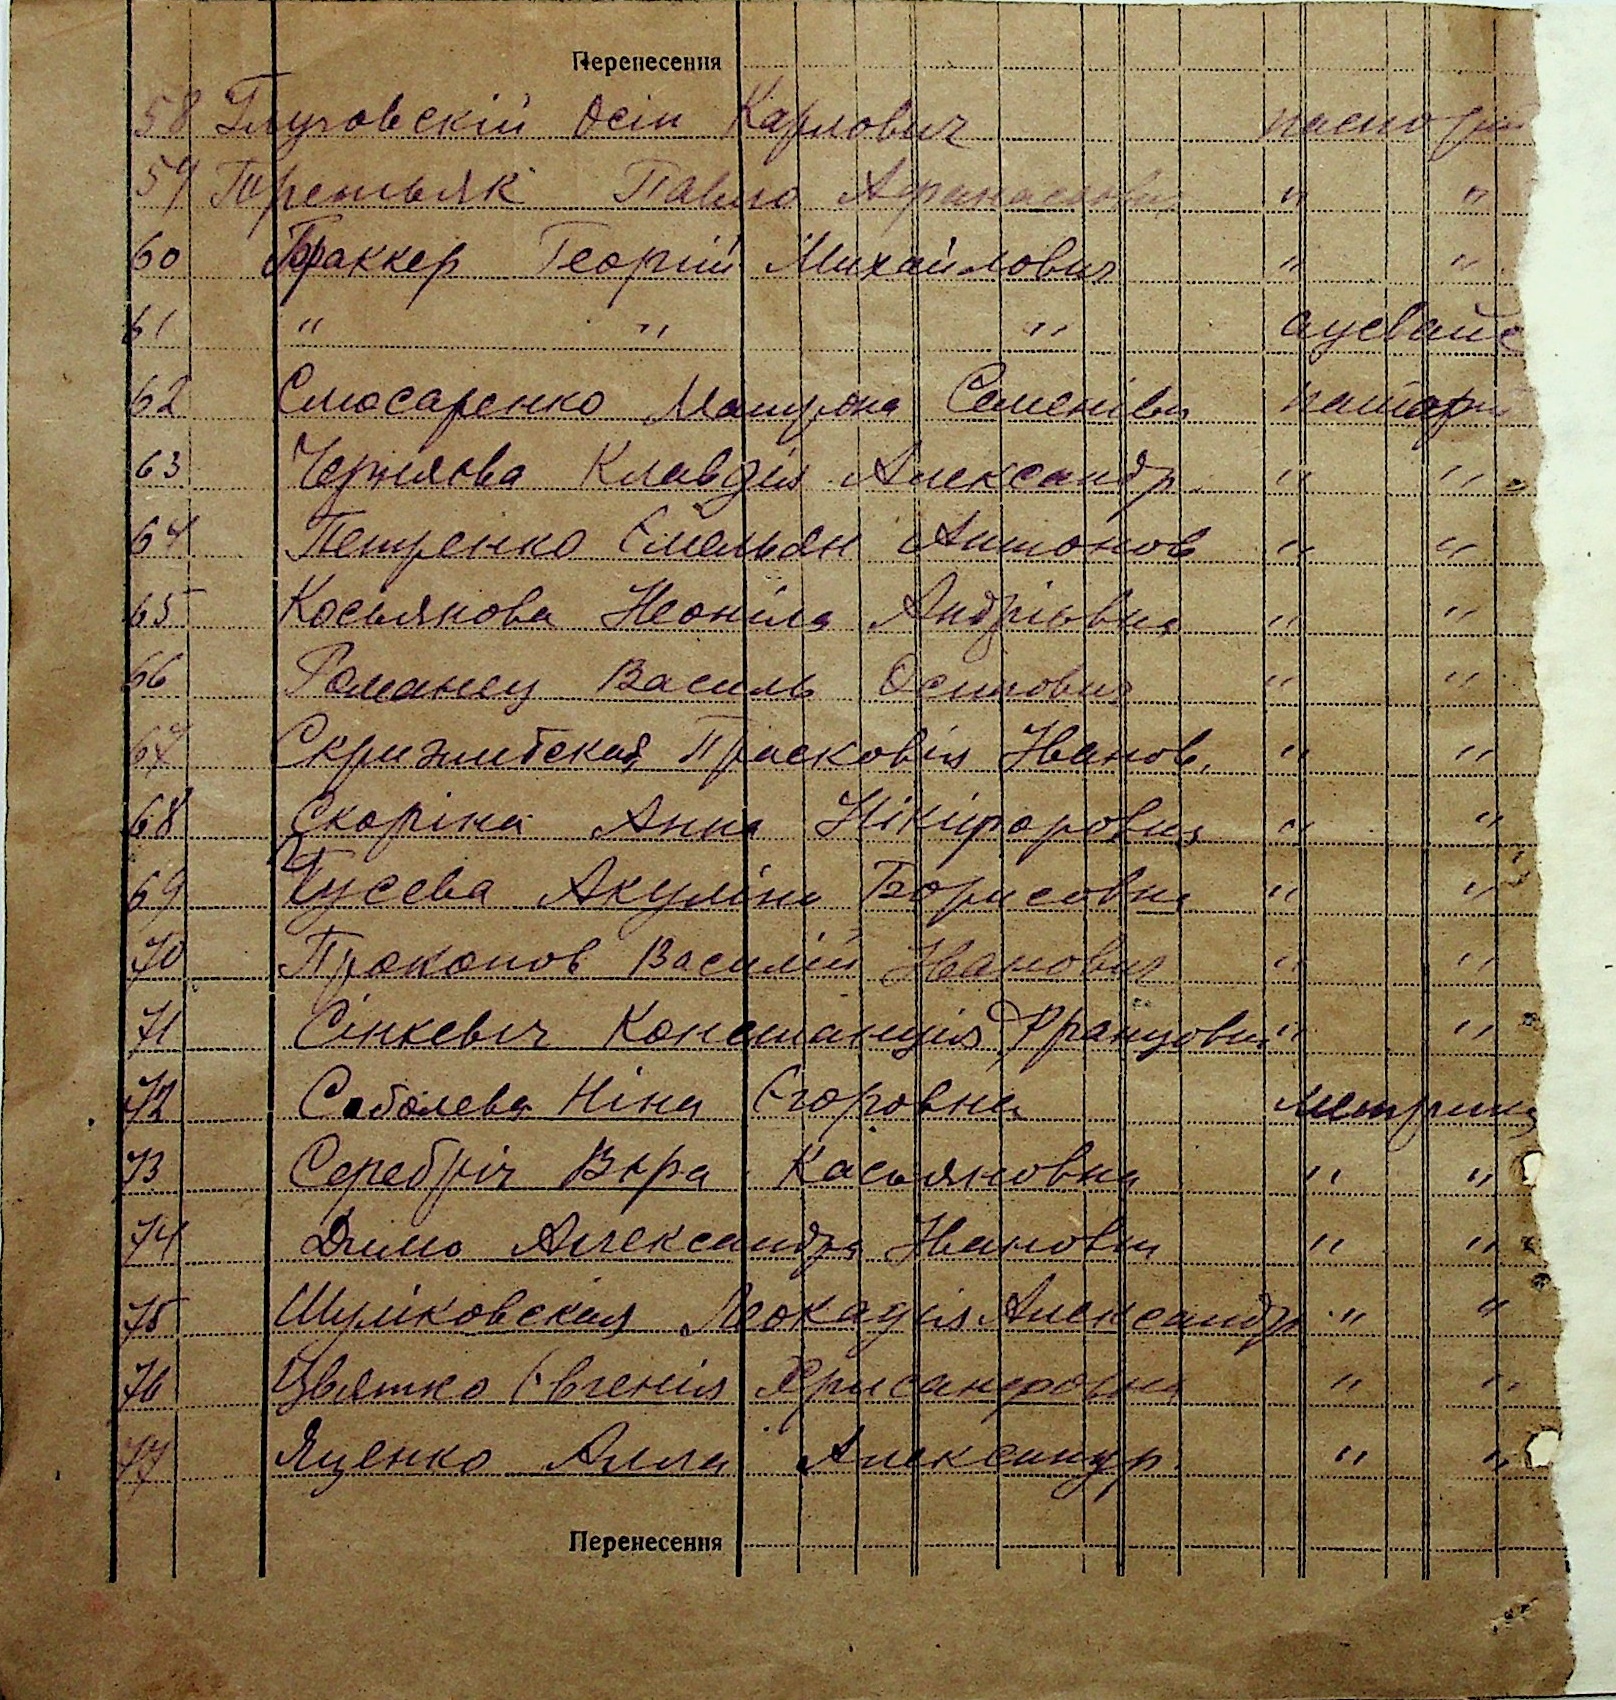 Перенесення
58 Глуховскій Осіп Карлович паспорт
59 Третьяк Павло Афанасович " "
60 Браккер Георгій Михайлович " "
61 " " " аусвайс
62 Слюсаренко Матрона Семенівна
63 Чернлова Клавдія Александр. " "
64 Петренко Емельян Антонов " "
65 Косьянова Неоніла Андріівна " "
66 Романец Василь Осипович " "
67 Скрижитская Прасковія Іванов. " "
68 Скоріна Анна Нікіфоровна " "
69 Гусева Акуліна Борисовна " "
70 Прокопов Василій Іванович " "
71 Сінкевіч Констанція Францовна " "
72 Соболева Ніна Єгоровна метрика
73 Серебріч Вера Касьяновна " "
74 Димо Александра Івановна " "
75 Шуліковская Леокадія Александр " "
76 Цвятко Євгенія Хрисанфовна " "
77 Яценко Алла Александр. " "
Перенесення